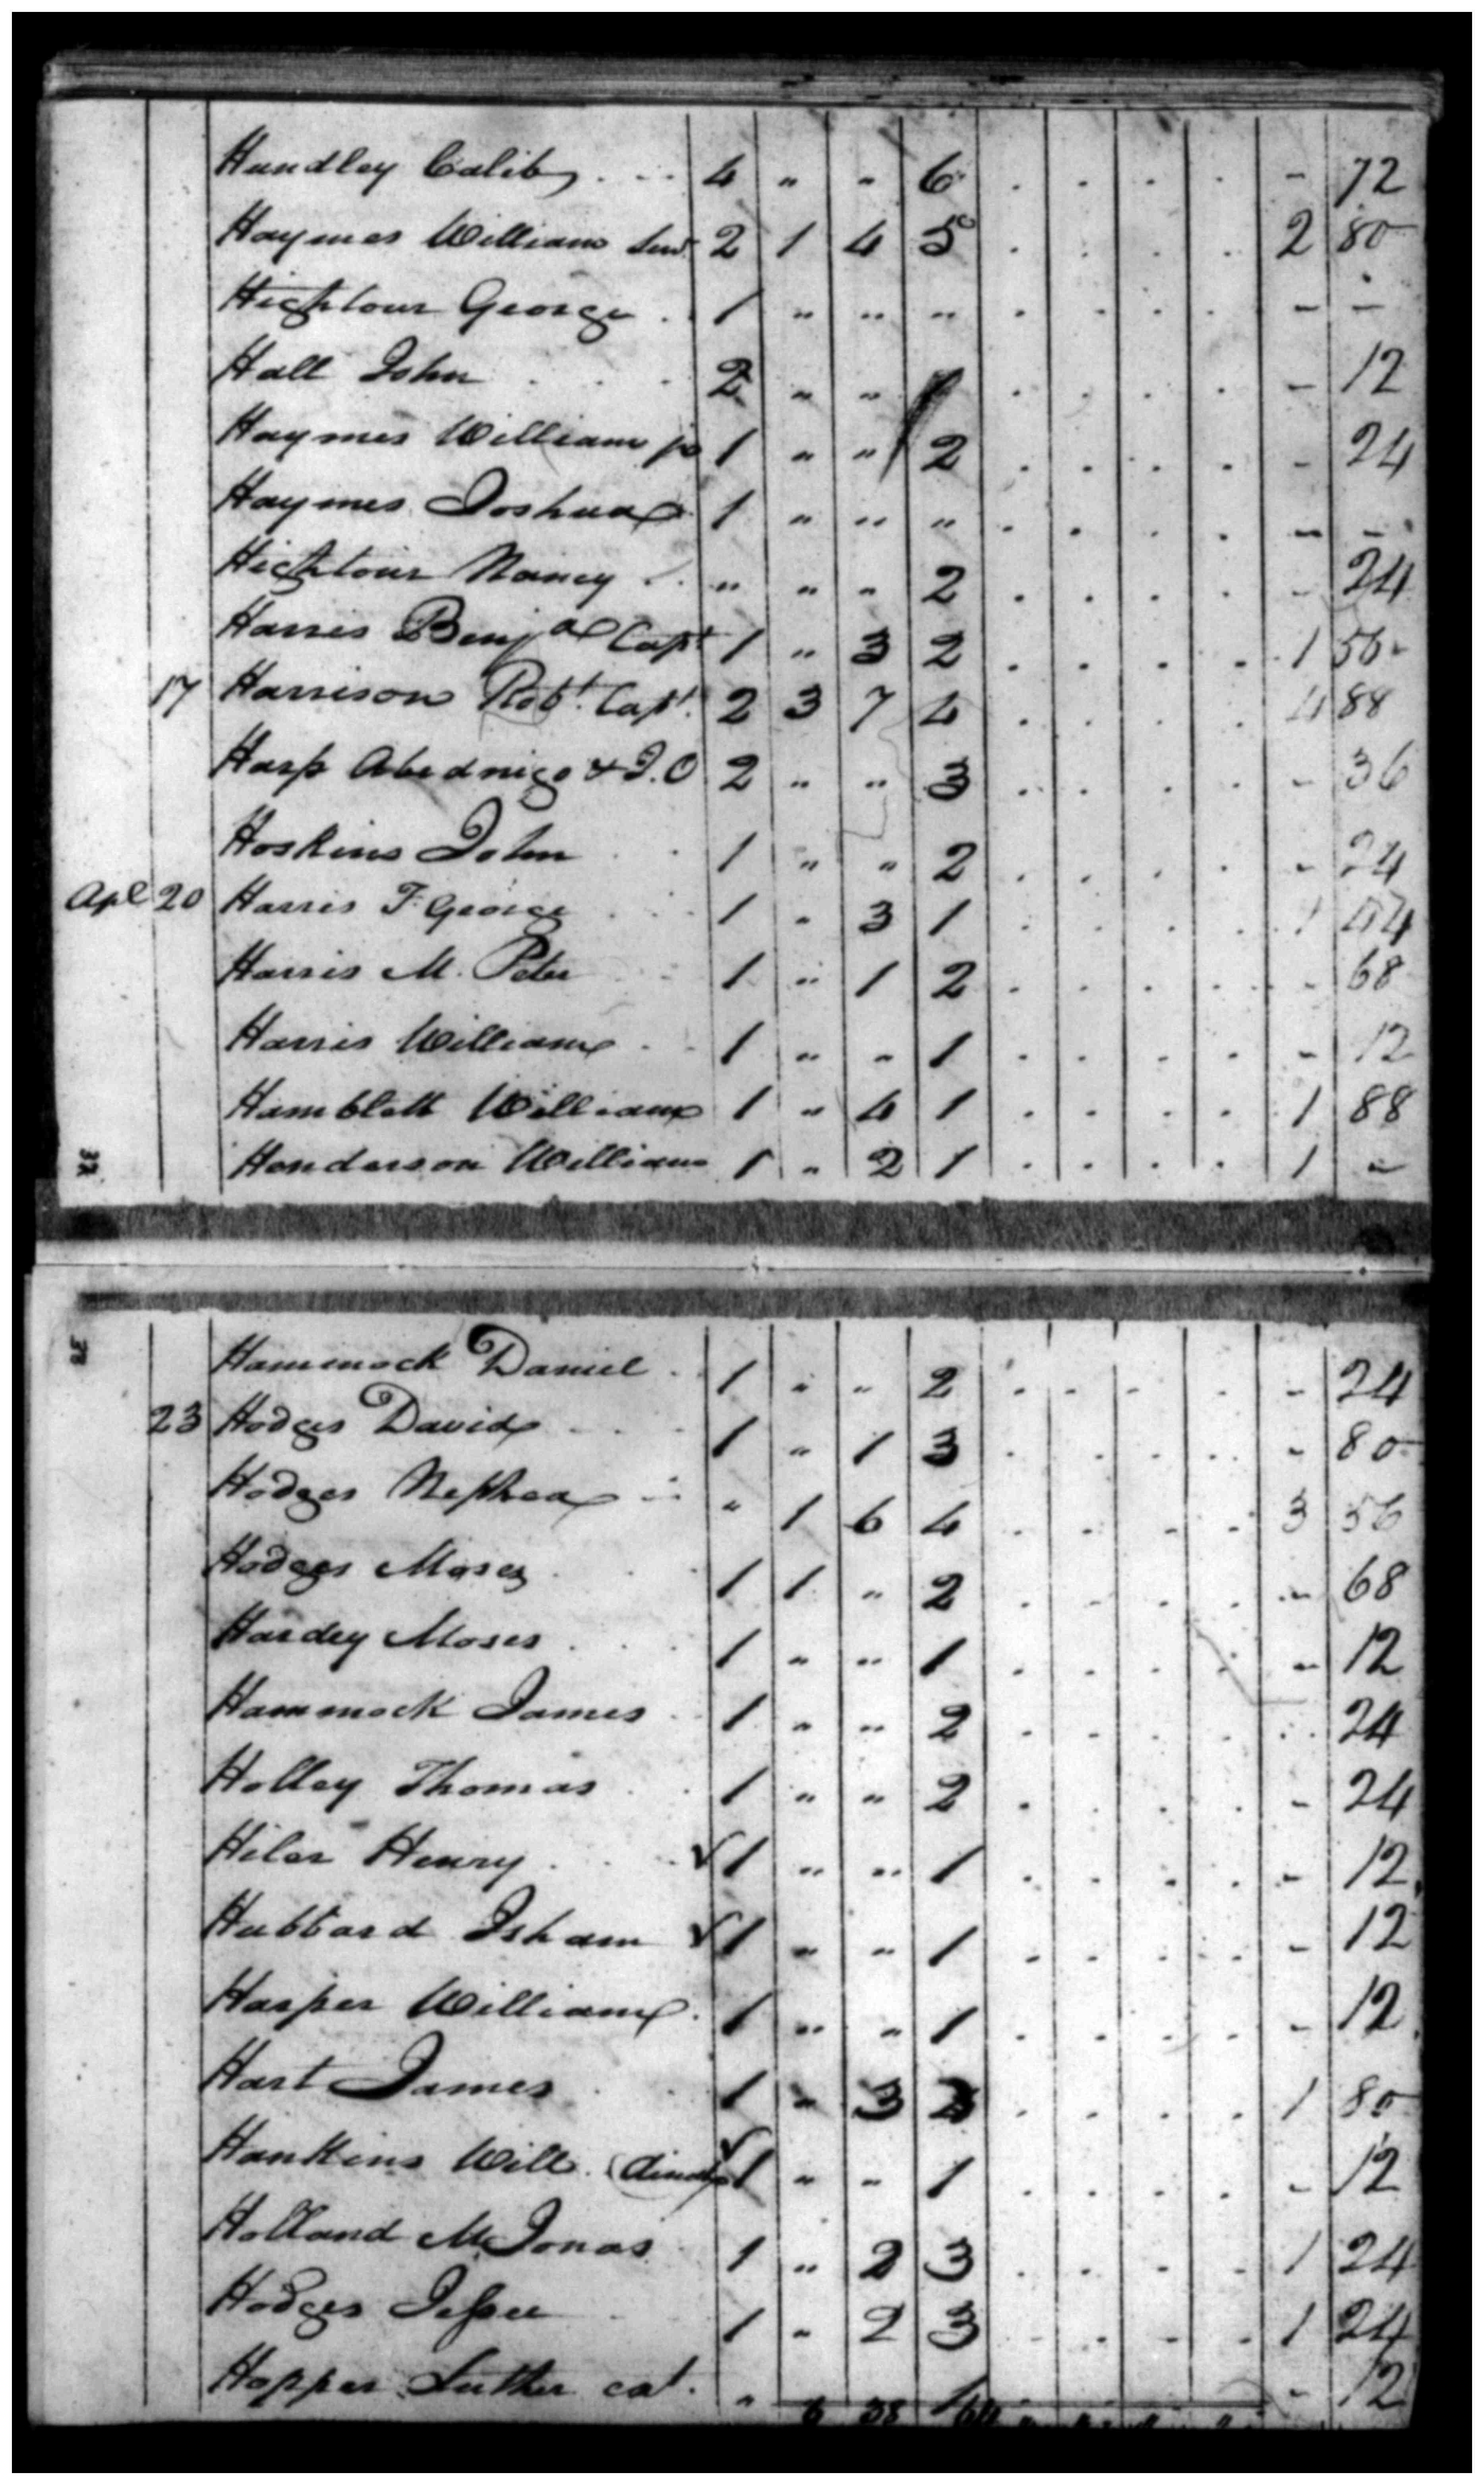 Handley Calib . . . 4 " " 6 . . . . - 72
Haymes William Senr 2 1 4 5 . . . . 2 80
Hightour George . 1 " " " . . . . - -
Hall John . . . 2 " " 1 . . . . - 12
Haymes William jr 1 " " 2 . . . . - 24
Haymes Joshua 1 " " " . . . . - -
Hightour Nancy . . " " " 2 . . . . - 24
Harris Benja Capt 1 " 3 2 . . . . 1 56
17 Harrison Robt. Capt. 2 3 7 4 . . . . 4 88
Harp Abednigo & J. O 2 " " 3 . . . . - 36
Hoskins John . . 1 " " 2 . . . . - 24
Apl 20 Harris F. George . . . 1 " 3 1 . . . . 1 44
Harris M. Peter . . 1 " 1 2 . . . . - 68
Harris William . . 1 " " 1 . . . . - 12
Hamblett William 1 " 4 1 . . . . 1 88
Henderson William 1 " 2 1 . . . . 1 -
Hammock Daniel . 1 " " 2 . . . . - 24
23 Hodges David . . . 1 " 1 3 . . . . - 80
Hodges Nephea . . " 1 6 4 . . . . 3 56
Hodges Moses . . 1 1 " 2 . . . . - 68
Hardey Moses . . . 1 " " 1 . . . . - 12
Hammock James . 1 " " 2 . . . . . 24
Holley Thomas . . 1 " " 2 . . . . - 24
Hiler Henry . . . √ 1 " " 1 . . . . - 12
Hubbard Isham √ 1 " " 1 . . . . - 12
Harper William . 1 " " 1 . . . . - 12
Hart James . . 1 " 3 3 . . . . 1 80
Hankins Will. √ 1 " " 1 . . . . - 12
Holland M. Jonas 1 " 2 3 . . . . 1 24
Hodges Jessee . 1 " 2 3 . . . . 1 24
Hopper Luther est. " 1 . - 12
6 38 64